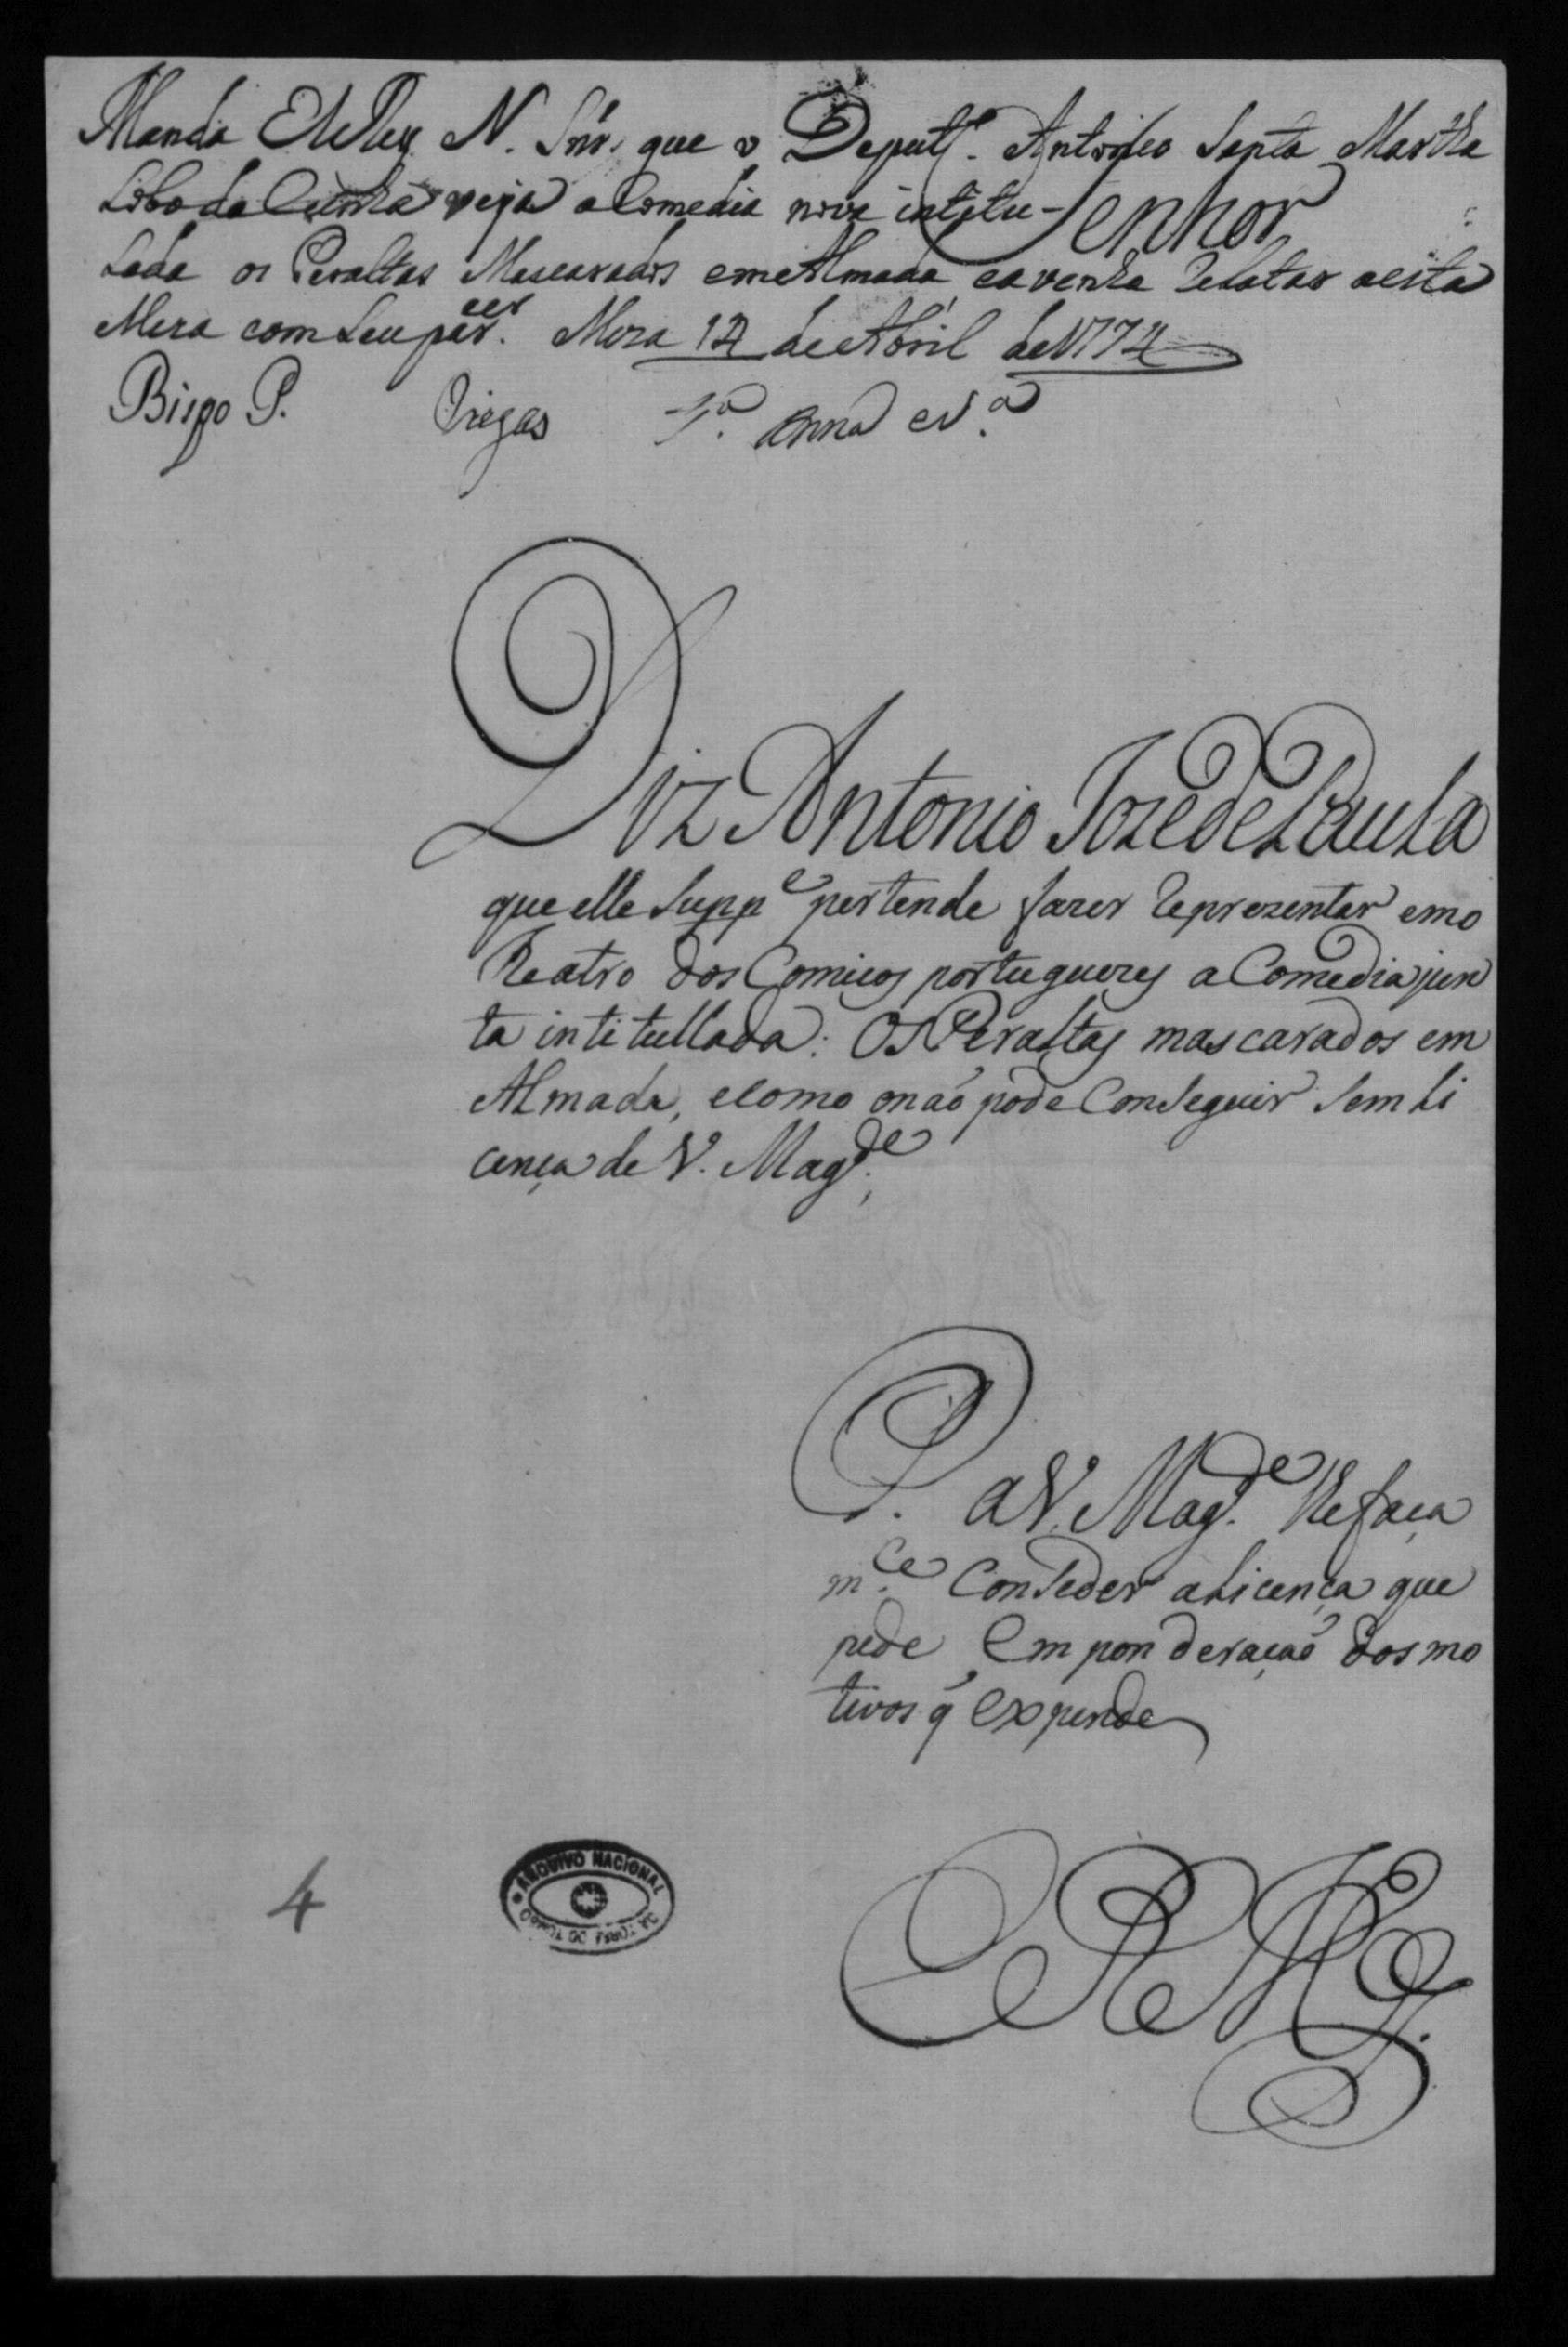 Manda ElRey N. Snr. que o Deput.º Antonio Santa Martha
Lobo da Cunha veja a Comedia nova intitu-
Senhor
lada os Peraltas Mascarados em Almada e a venha relatar a esta
Meza com seu par.cer Meza 14 de Abril de 1774
Bispo P. Viegas
Diz Antonio Joze de Paula
que elle Supp.e pertende fazer reprezentar em o
Theatro dos Comicos portuguezes a Comedia jun
ta intitullada: Os Peraltas mascarados em
Almada, e como o naõ pode Conseguir sem li
cença de V. Mag.de;
P. a V. Mag.de lhe faça
m.ce Conseder a Licença que
pede em ponderaçaõ dos mo
tivos q̃ expende
ERM
4
ARQUIVO NACIONAL
DA TORRE DO TOMBO